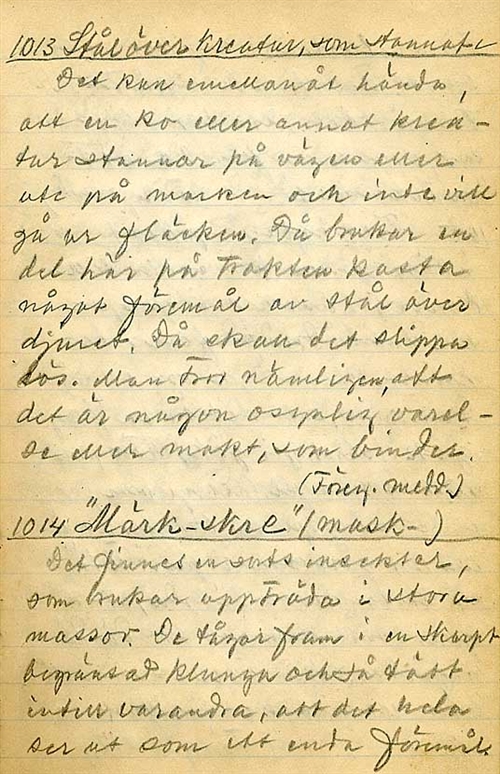 1013 Stål över kreatur, som stannat
Det kan emellanåt hända,
att en ko eller annat krea-
tur stannar på vägen eller
ute på marken och inte vill
gå ur fläcken. Då brukar en
del här på trakten kasta
något föremål av stål över
djuret. Då skall det slippa
lös. Man tror nämligen, att
det är någon osynlig varel-
se eller makt, som binder.
(Föreg. medd.)
1014 "Märk-skre" (mask-)
Det finnes en sorts insekter,
som brukar uppträda i stora
massor. De tågar fram i en skarpt
begränsad klunga och så tätt
intill varandra, att det hela
ser ut som ett enda föremål.